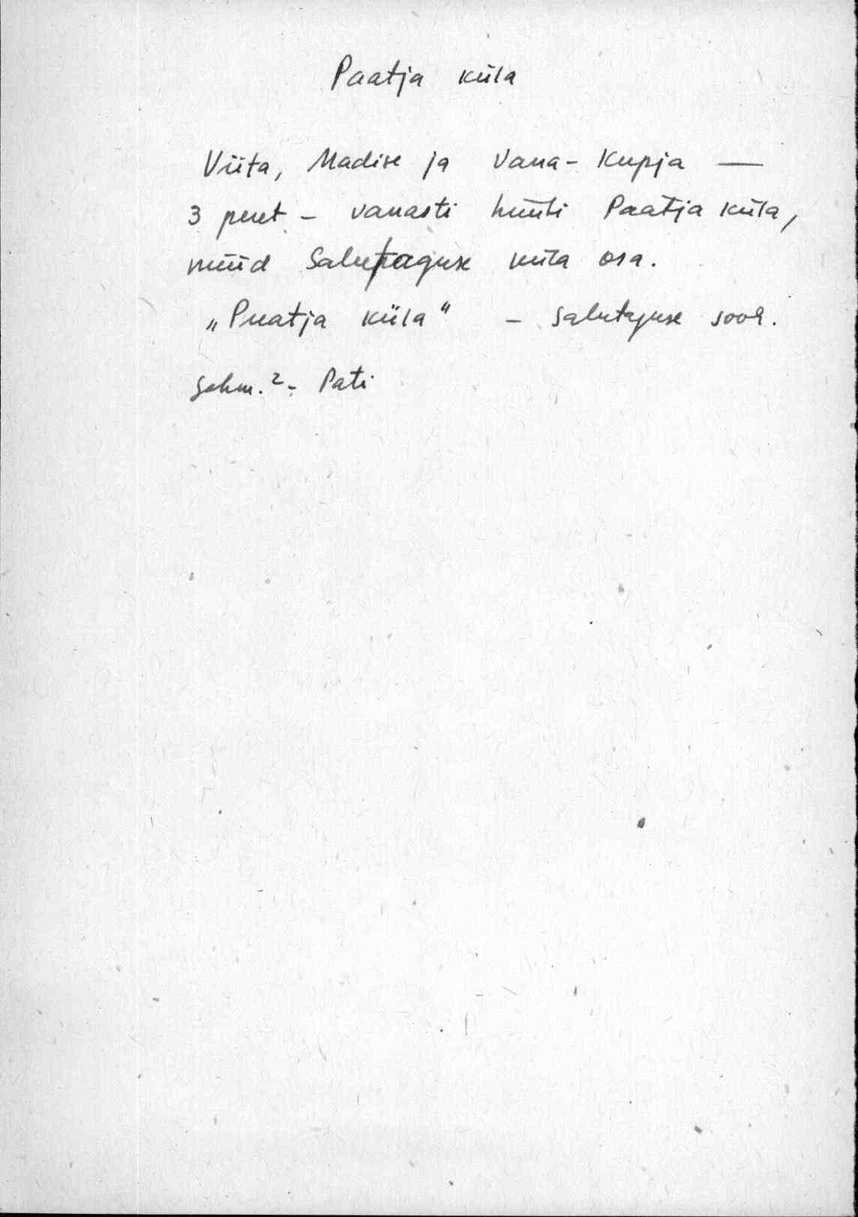 Paatja küla
Viita, Madise ja Vana-Kupja —
3 peret - vanasti hüüti Paatja küla,
nüüd Salutaguse küla osa.
„Puatja küla“ - Salutaguse sood.
Pati